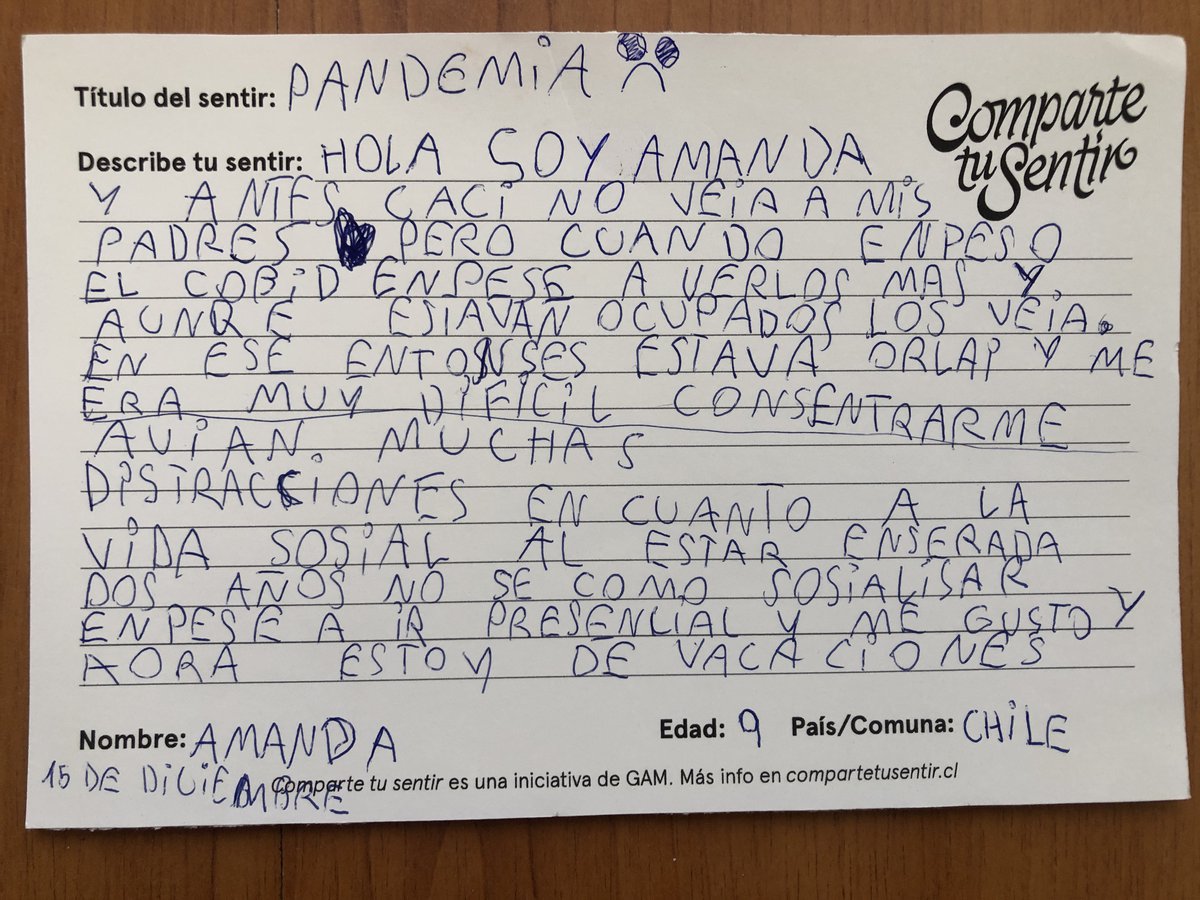 Título del sentir: PANDEMIA
Comparte
tu Sentir
Describe tu sentir: HOLA SOY AMANDA
Y ANTES CACI NO VEIA A MIS
PADRES PERO CUANDO ENPESO
EL COBID ENPESE A VERLOS MAS Y
AUNQE ESTAVAN OCUPADOS LOS VEIA.
EN ESE ENTONSSES ESTAVA ORLAP Y ME
ERA MUY DIFICIL CONSENTRARME
AVIAN MUCHAS
DISTRACCIONES EN CUANTO A LA
VIDA SOSIAL AL ESTAR ENSERADA
DOS AÑOS NO SE COMO SOSIALISAR
ENPESE A IR PRESENCIAL Y ME GUSTO Y
AORA ESTOY DE VACACIONES
Nombre: AMANDA Edad: 9 País/Comuna: CHILE
15 DE DICIEMBRE
Comparte tu sentir es una iniciativa de GAM. Más info en compartetusentir.cl